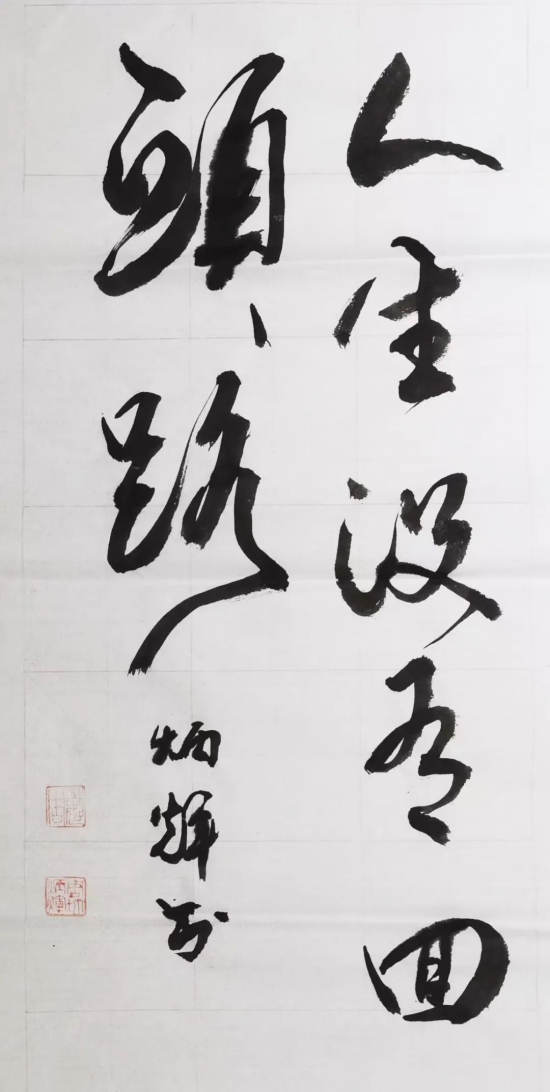 人生没有回
頭路
炳輝书